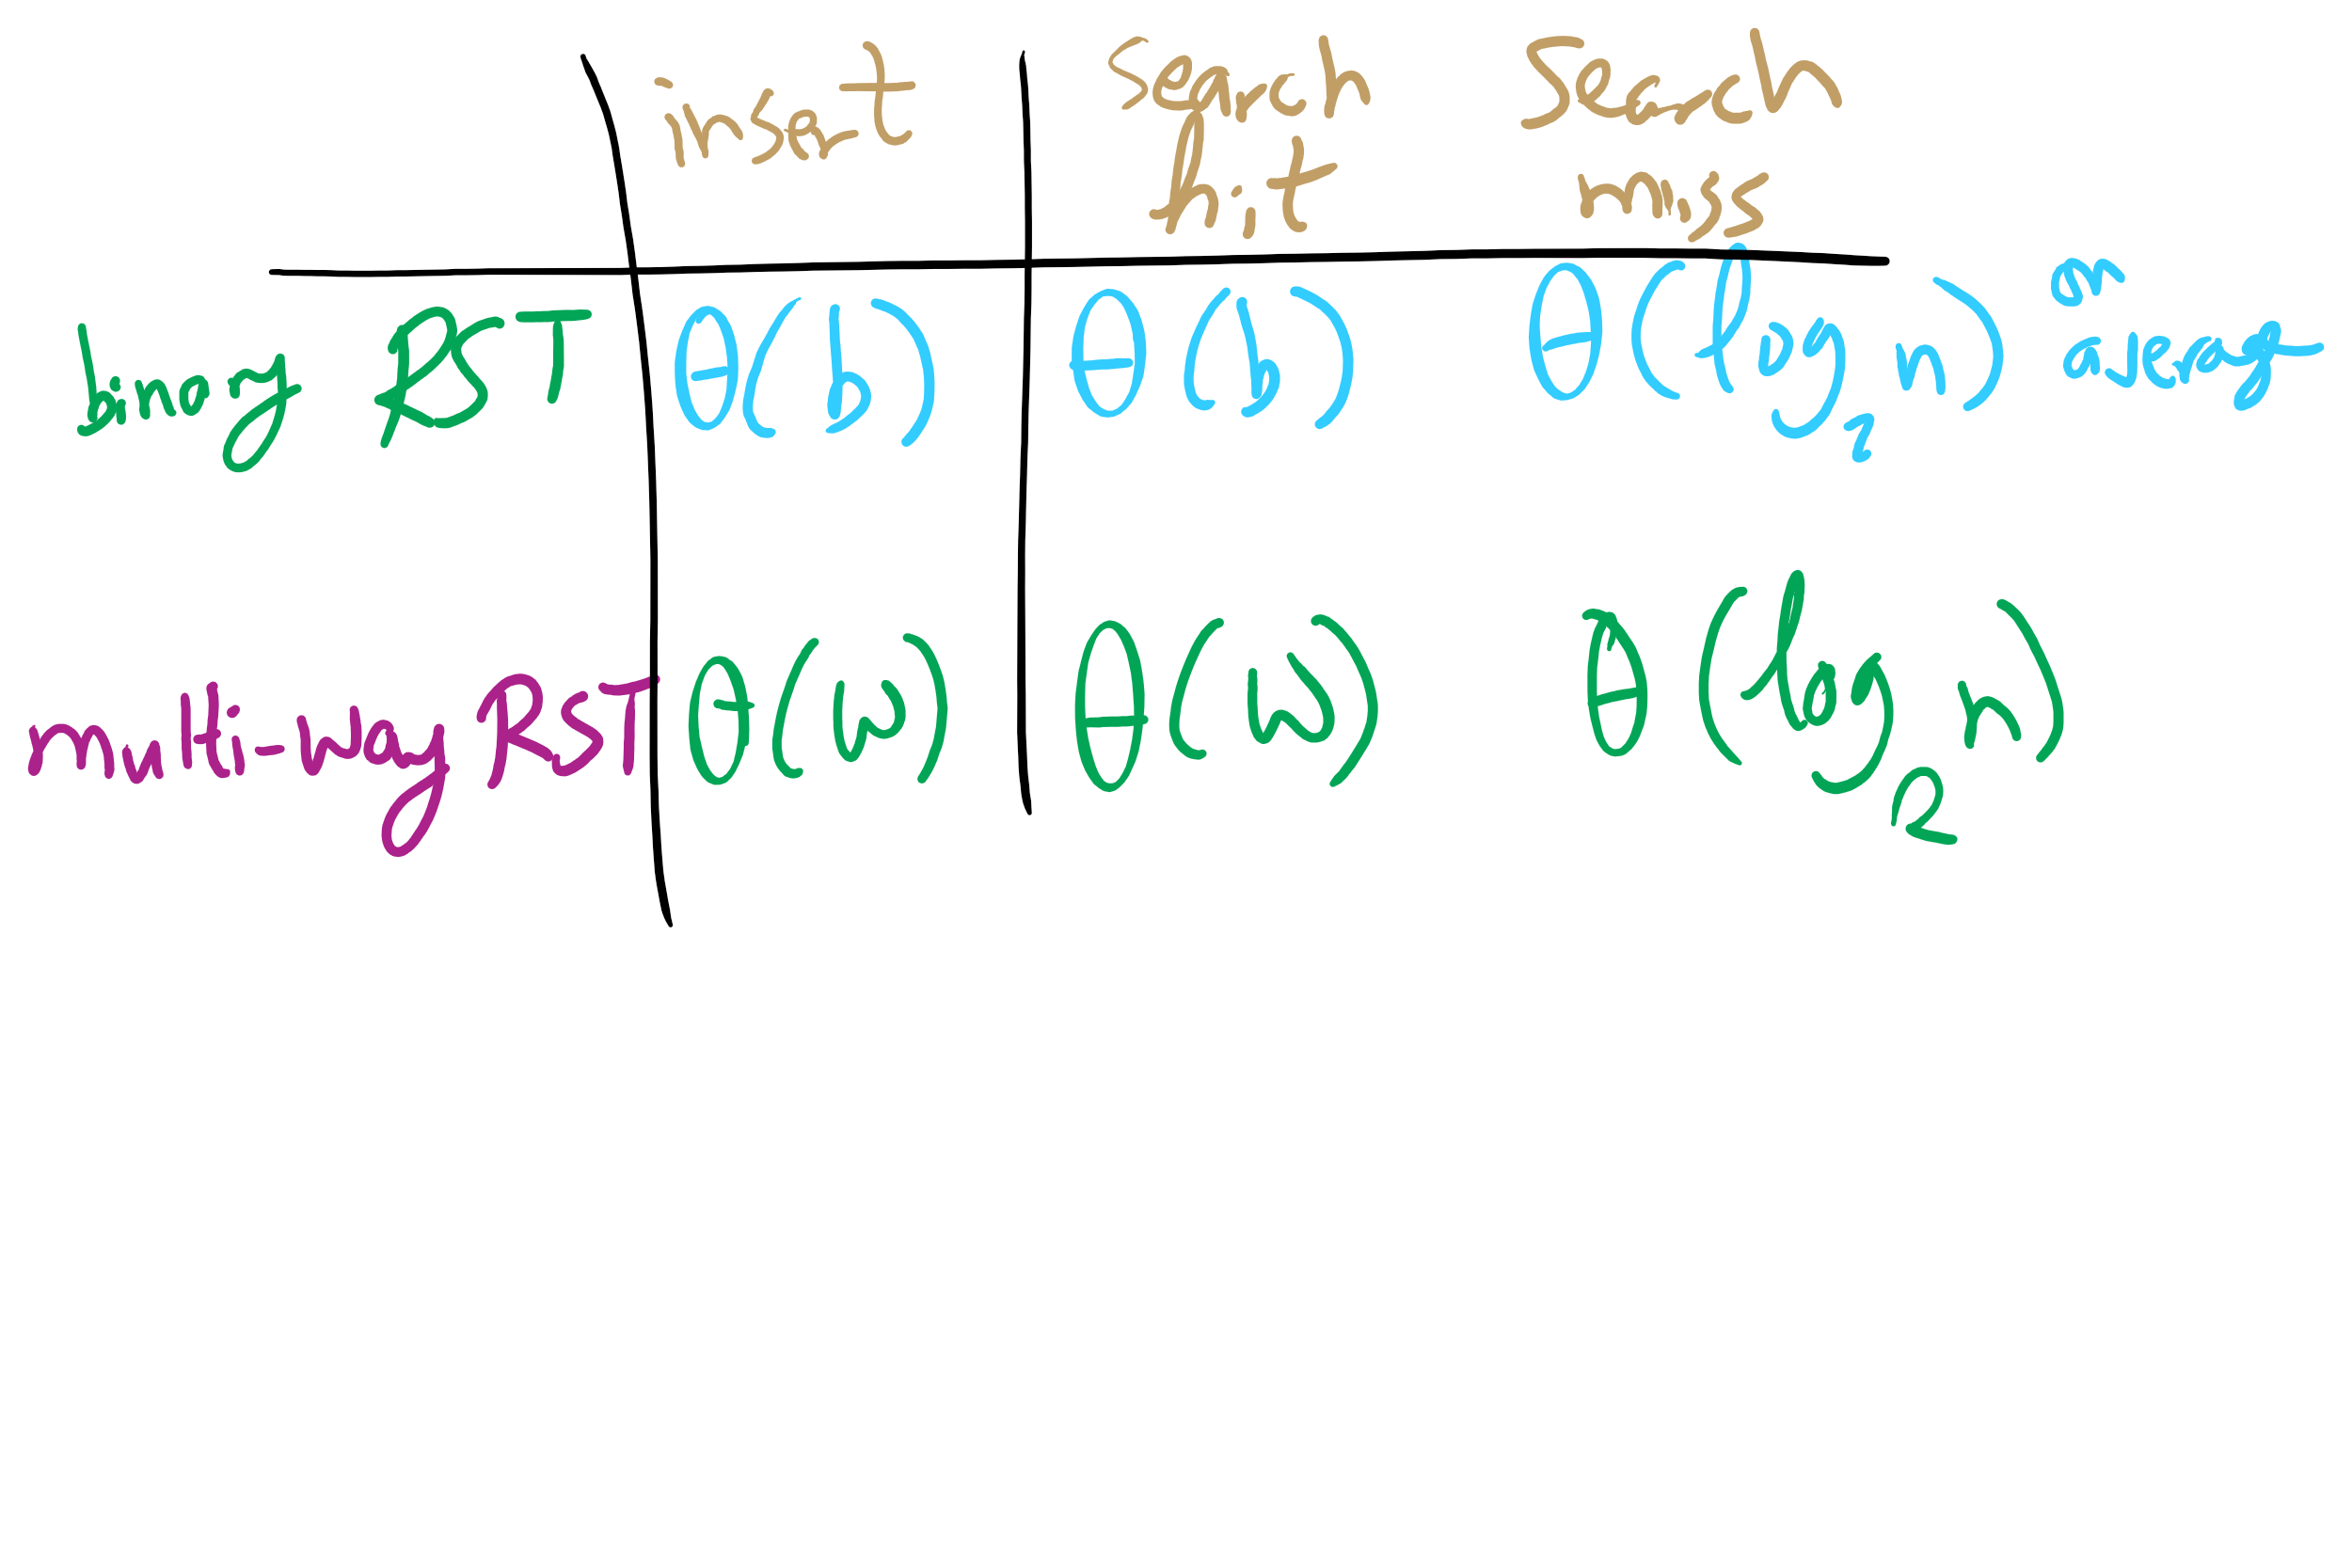 insert search hit search miss
binary RST θ(b) θ(b) θ(log₂ n) on average
multi-way RST θ(w) θ(w) θ(log₂ n)